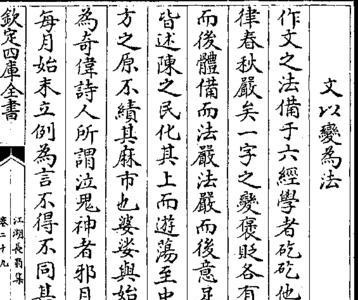 文以變為法
作文之法備于六經學者矻矻他
律春秋嚴矣一字之發褒貶各有
而後體備而法嚴法嚴而後意
皆述陳之民化其上而遊蕩至
方之原不績其麻市也婆娑與始
為奇偉詩人所謂泣鬼神者邪
每月始末立例為言不得不同其
欽定四庫全書
江湖長翁集
卷二十九